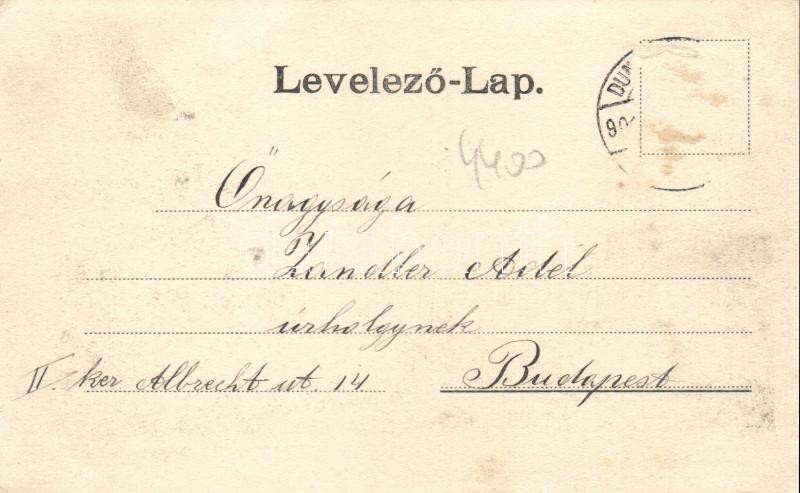 Levelező-Lap.
DUN
90
4400
Őnagysága
Zandler Adél
úrhölgynek
II ker Albrecht út. 14
Budapest